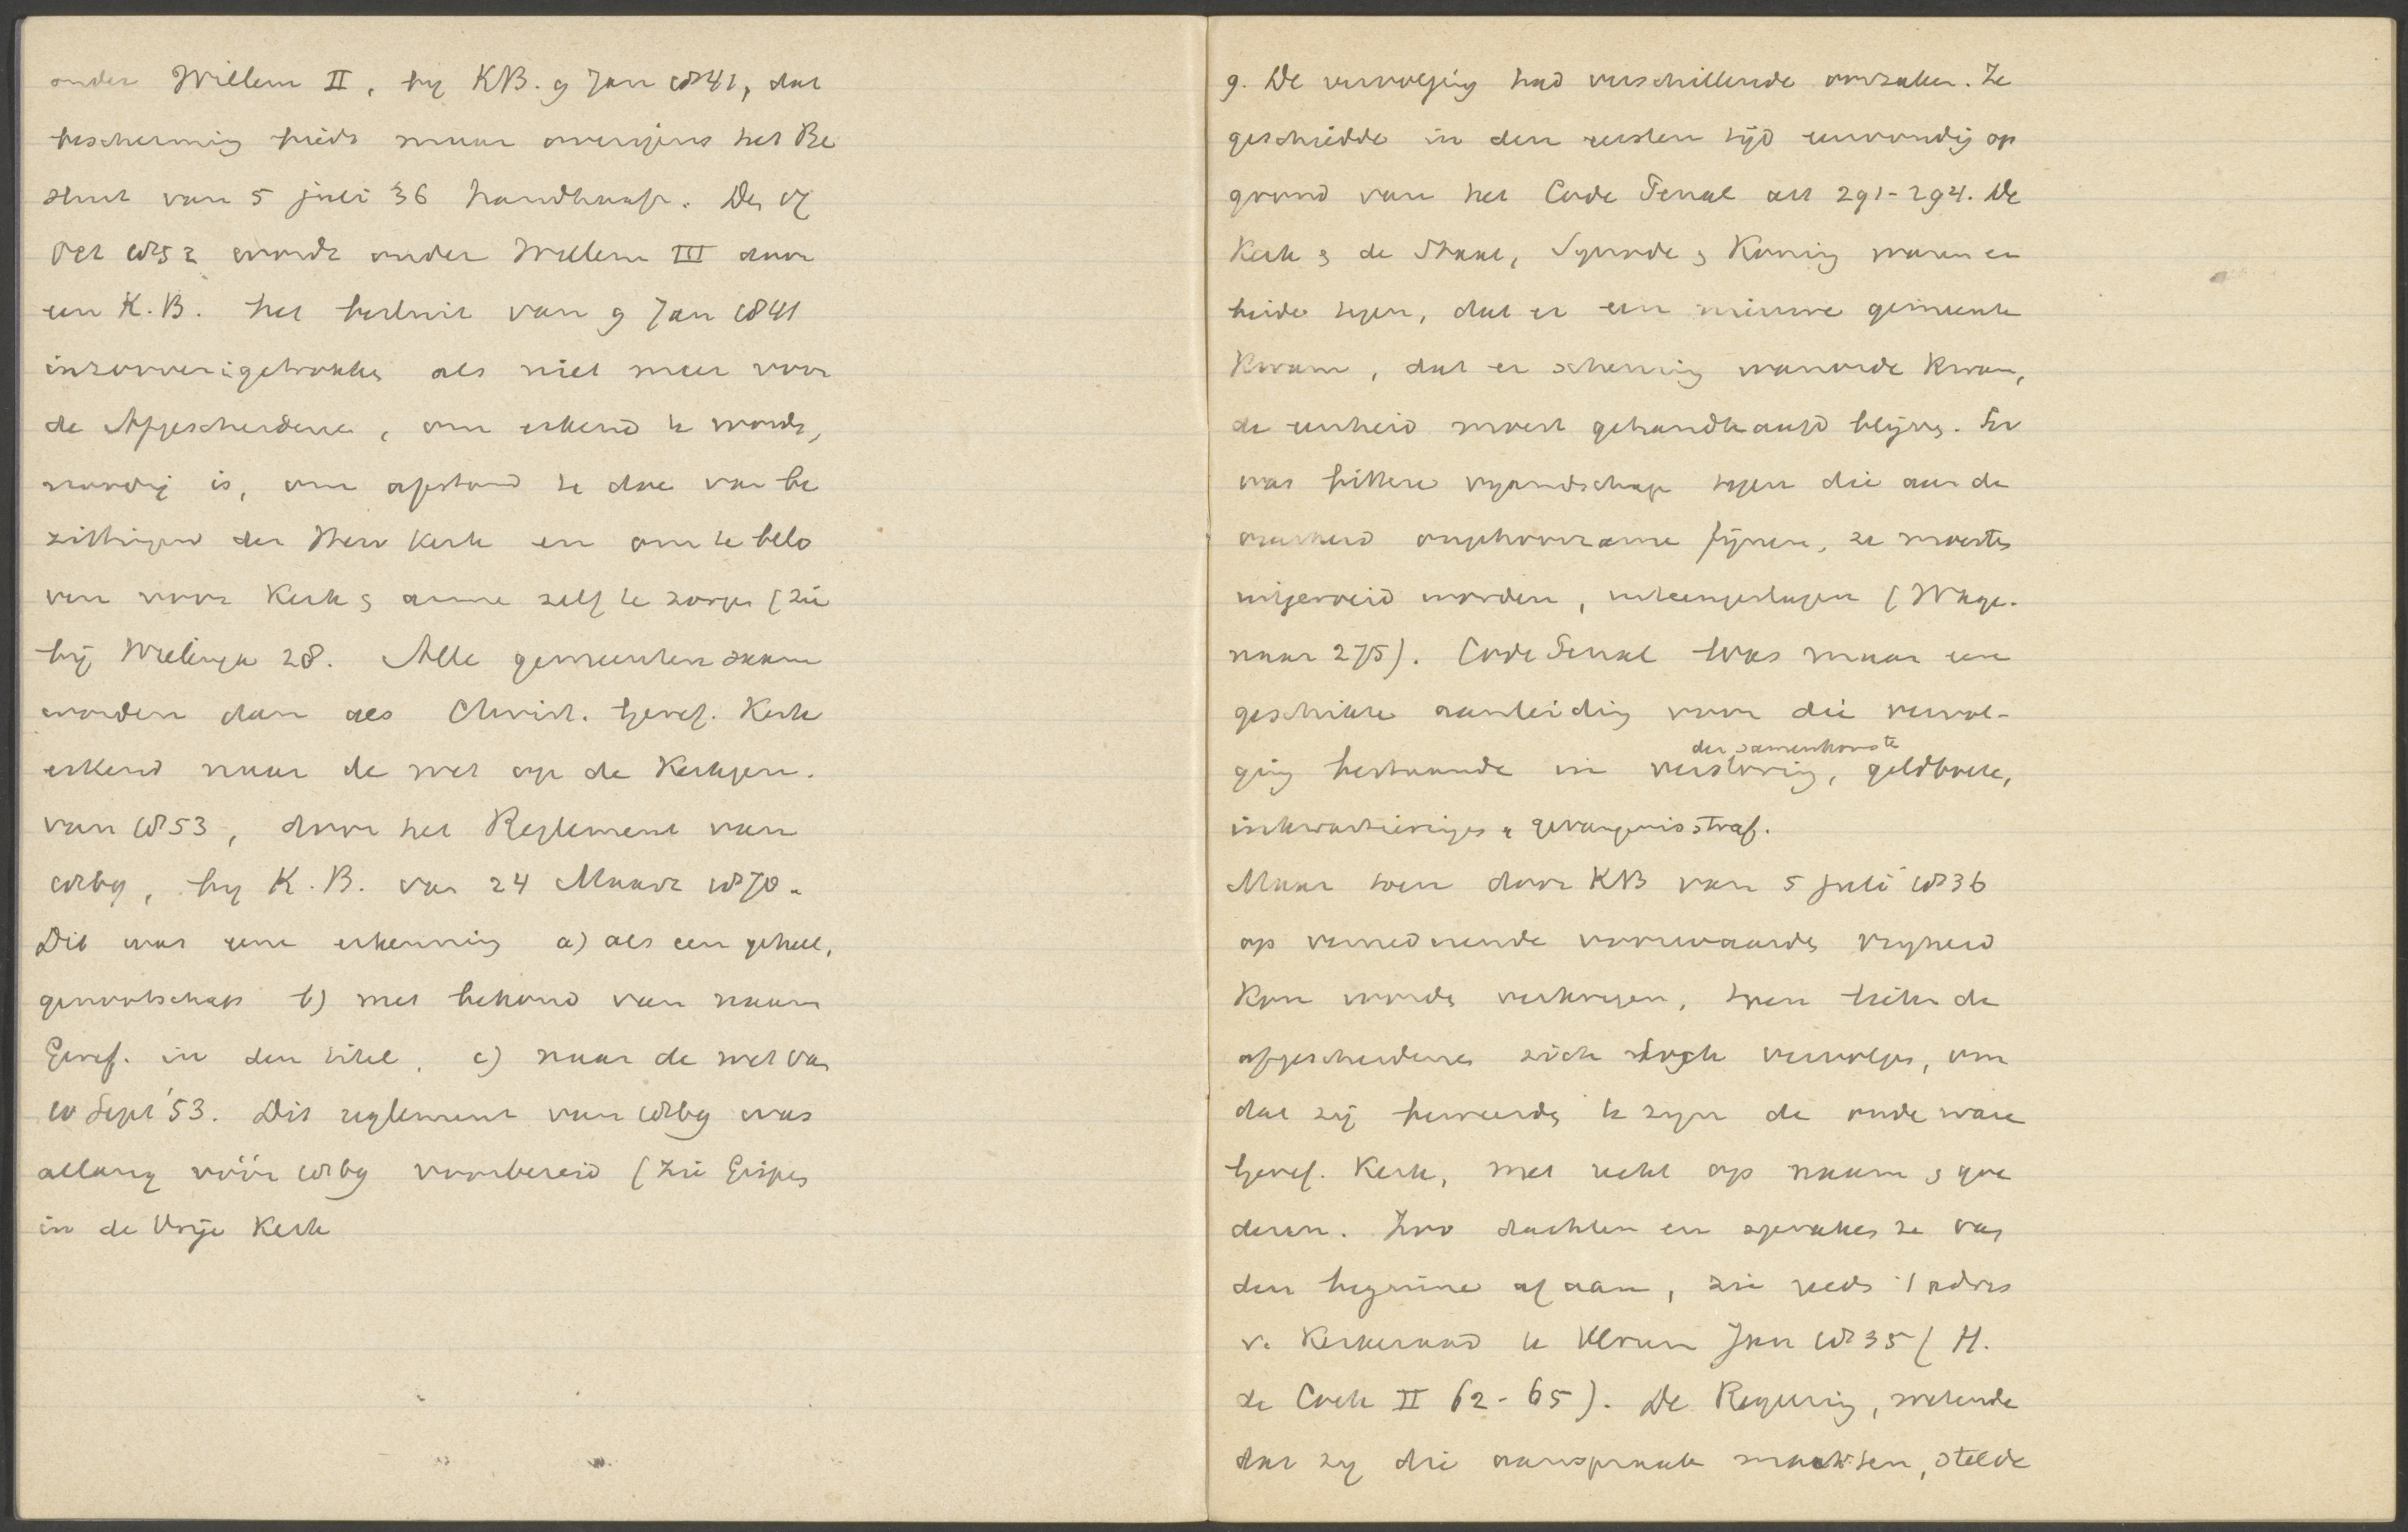 onder Willem II, by KB. 9 Jan 1841, dat
bescherming biedt maar overigens het Be
sluit van 5 juli 36 handhaaft. Den
Oct 1852 wordt onder Willem III door
een K.B. het besluit van 9 Jan 1841
ingetrokken als niet meer voor
de Afgescheidene, om erkend te worde,
noodig is, om afstand te doe van be
zittingen der Herv Kerk en om te belo
ven voor Kerk & arme zelf te zorgen (zie
bij Wielenga 28. Alle gemeenten saam
worden dan als Christ. Geref. Kerk
erkend naar de wet op de Kerkgen.
van 1853, door het Reglement van
1869, by K.B. van 24 Maart 1870.
Dit was een erkenning a) als een geheel,
genootschap b) met behoud van naam
Geref. in den titel, c) naar de wet van
10 Sept '53. Dit reglement van 1869 was
allang vóór 1869 voorbereid (zie Gispen
in de Vrije Kerk
9. De vervolging had verschillende oorzaken. Ze
geschiedde in den eersten tijd eenvoudig op
grond van het Code Penal art 291-294. De
Kerk & de Staat, Synode & Koning waren er
beide tegen, dat er een nieuwe gemeente
kwam, dat er scheuring wanorde kwam,
de eenheid moest gehandhaafd blijven. Er
was bittere vyandschap tegen die aan de
overheid ongehoorzame fijnen, ze moesten
uitgeroeid worden, uiteengeslagen (Wage.
naar 275). Code Penal was maar een
geschikte aanleiding voor die vervol-
der samenkomste
ging bestaande in verstoring, geldboete,
inkwartieringen & gevangenisstraf.
Maar toen door KB van 5 juli 1836
op vernederende voorwaarden vryheid
Kon worde verkregen, toen lieten de
afgescheidenen zich toch vervolgen, om
dat zij beweerden te zyn de oude ware
Geref. Kerk, met recht op naam & goe
deren. Zoo dachten en spraken ze van
den beginne af aan, zie reeds 't adres
v. Kerkeraad te Ulrum Jan 1835 (H.
de Cock II 62-65). De Regering, wetende
dat zy die aanspraak maakten, stelde